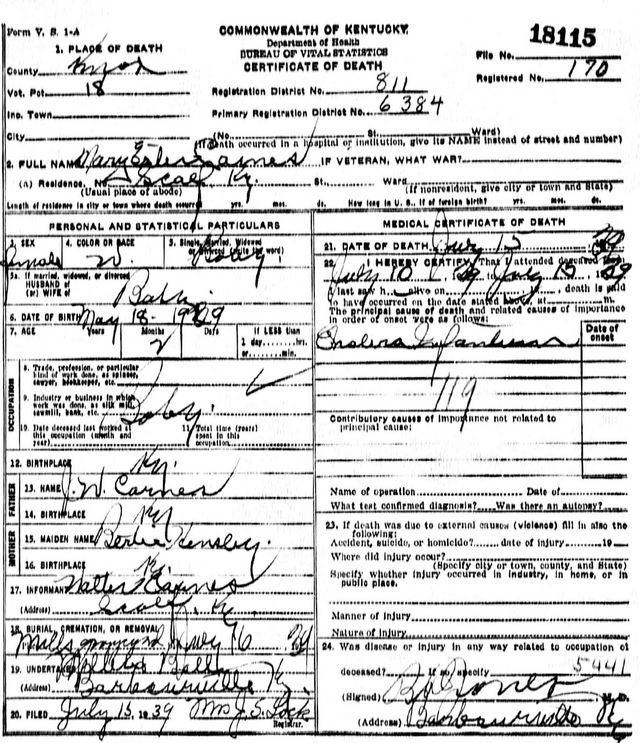 Form V. S. 1-A
COMMONWEALTH OF KENTUCKY
Department of Health
BUREAU OF VITAL STATISTICS
CERTIFICATE OF DEATH
18115
File No.
Registered No. 170
1. PLACE OF DEATH
County Knox
Vot. Pct 18
Inc. Town
City
Registration District No. 811
Primary Registration District No. 6384
(No. St. Ward)
(If death occurred in a hospital or institution, give its NAME instead of street and number)
2. FULL NAME Mary Carnes IF VETERAN, WHAT WAR?
(a) Residence, No. Scalf Ky. St., Ward
(Usual place of abode) (If nonresident, give city or town and State)
Length of residence in city or town where death occurred yrs. mos. ds. How long in U. S., if of foreign birth? yrs. mos. ds.
PERSONAL AND STATISTICAL PARTICULARS
3. SEX
Female
4. COLOR OR RACE
W.
5. Single, Married, Widowed
or Divorced (write the word)
5a. If married, widowed, or divorced
HUSBAND of
(or) WIFE of
6. DATE OF BIRTH May 18-1939
7. AGE Years Months Days If LESS than
2
1 day, hrs.
or min.
OCCUPATION
8. Trade, profession, or particular
kind of work done, as spinner,
sawyer, bookkeeper, etc.
9. Industry or business in which
work was done, as silk mill,
sawmill, bank, etc. Baby.
10. Date deceased last worked at
this occupation (month and
year)
11. Total time (years)
spent in this
occupation
12. BIRTHPLACE Ky.
FATHER
13. NAME J. W. Carnes
14. BIRTHPLACE Ky
MOTHER
15. MAIDEN NAME Hensley.
16. BIRTHPLACE Ky.
17. INFORMANT Walter Carnes
(Address) Scalf, Ky.
18. BURIAL, CREMATION, OR REMOVAL
Mills July 16 39
19. UNDERTAKER
(Address) Barbourville Ky.
20. FILED July 15, 1939 Mrs J. S. Lock
Registrar.
MEDICAL CERTIFICATE OF DEATH
21. DATE OF DEATH July 15 39
22. I HEREBY CERTIFY, That I attended deceased from
July 10, 1939 to July 15, 1939
I last saw h alive on , death is said
to have occurred on the date stated above, at m.
The principal cause of death and related causes of importance
in order of onset were as follows:
Date of
onset
Cholera Infantum
119
Contributory causes of importance not related to
principal cause:
Name of operation Date of
What test confirmed diagnosis? Was there an autopsy?
23. If death was due to external causes (violence) fill in also the
following:
Accident, suicide, or homicide? date of injury 19
Where did injury occur?
(Specify city or town, county, and State)
Specify whether injury occurred in industry, in home, or in
public place.
Manner of injury
Nature of injury
24. Was disease or injury in any way related to occupation of
deceased? If so, specify 5441
(Signed) M. D.
(Address) Barbourville Ky